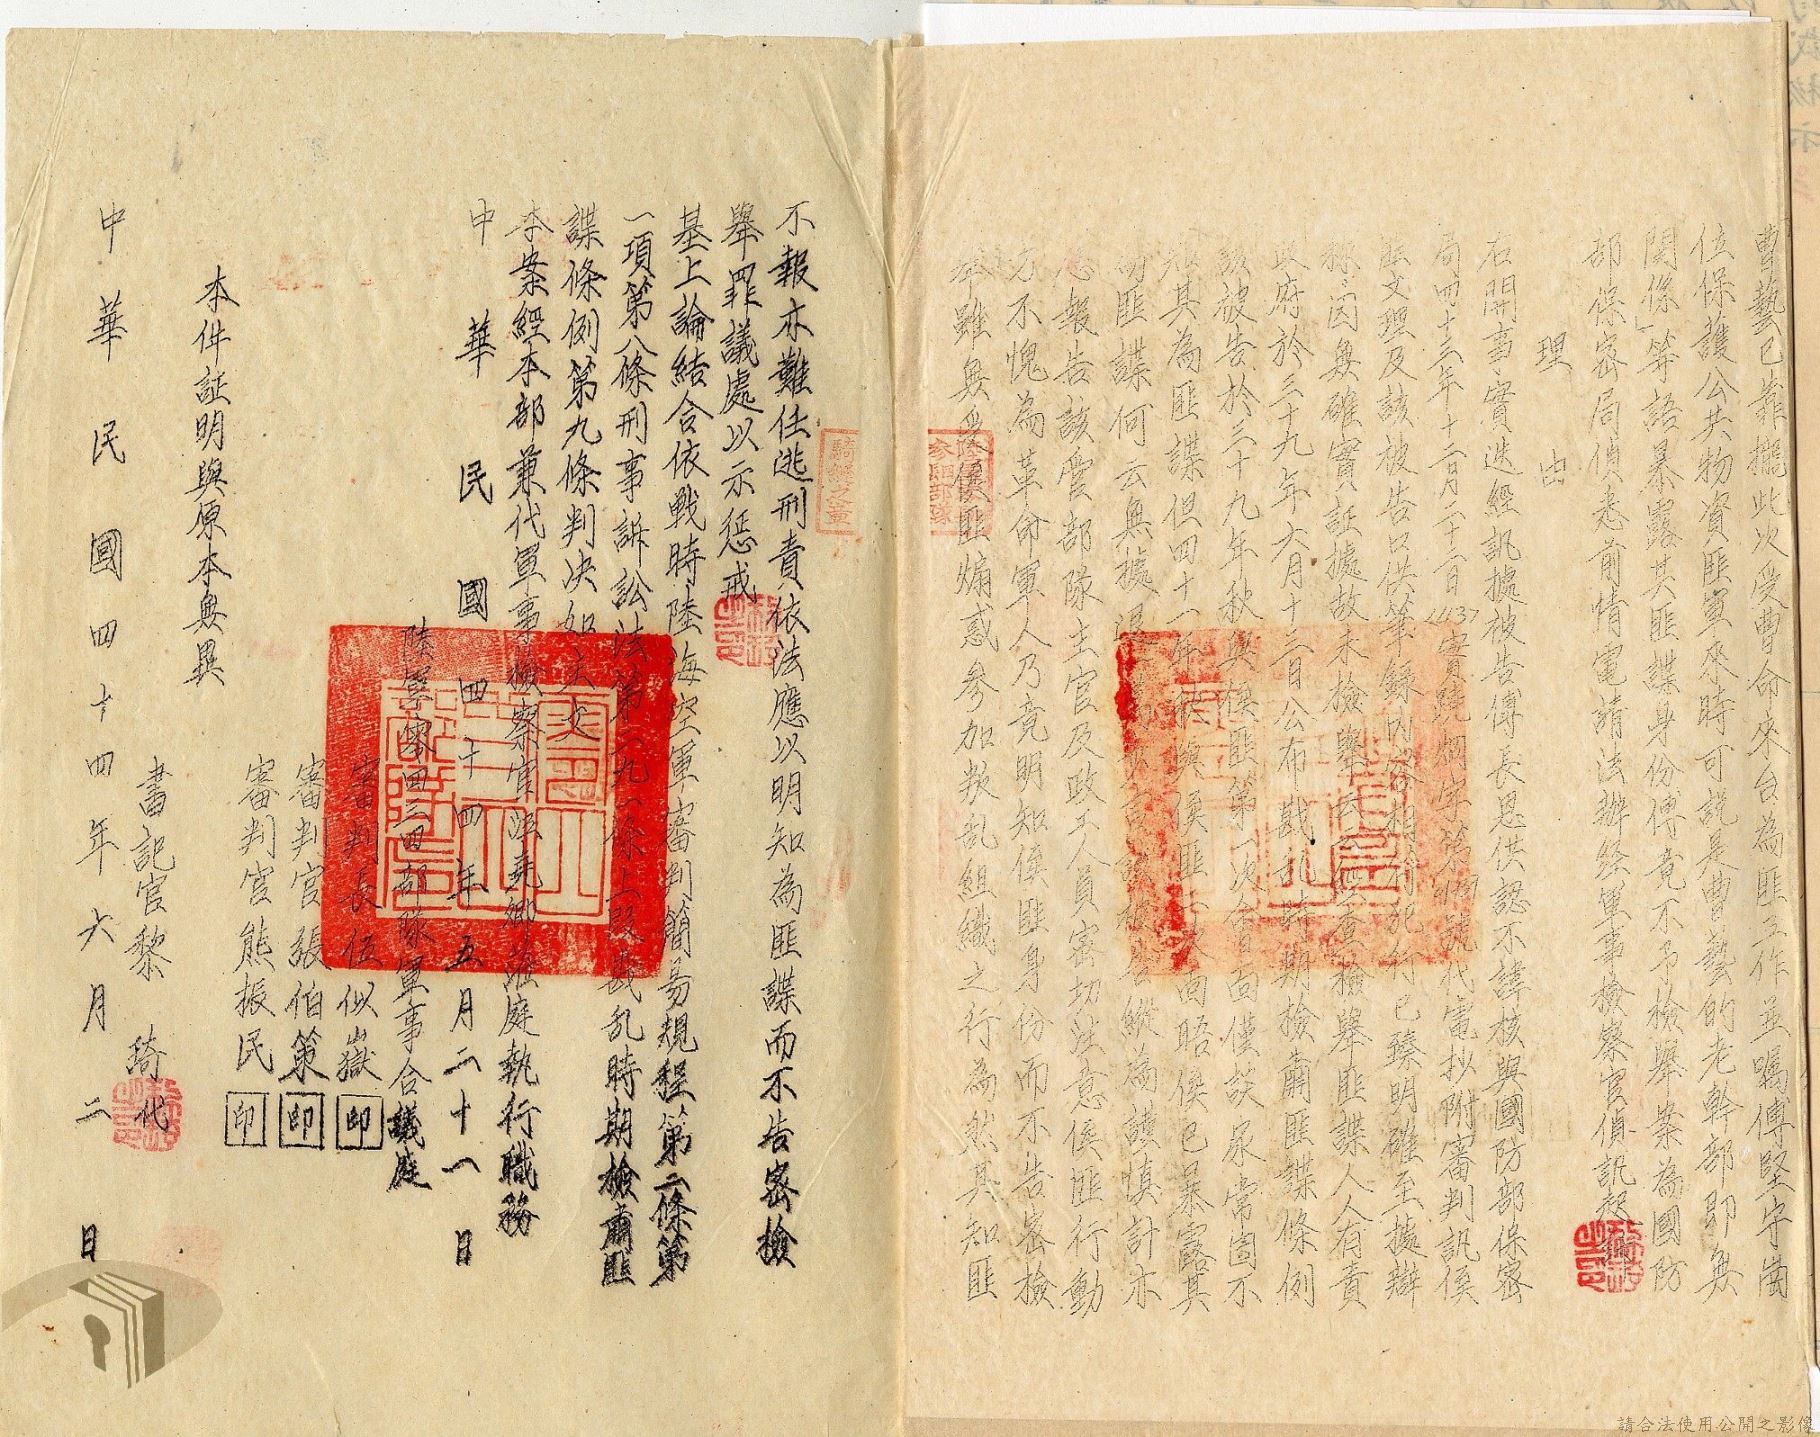 曹藝已靠攏此次受曹命來台為匪工作並囑傅堅守崗
位保護公共物資匪軍來時可說是曹藝的老幹部即無
関係」等語暴露其匪諜身份傅竟不予檢舉案為國防
部保密局偵悉前情電請法辦經軍事檢察官偵訊起訴
理由
右開事實迭經訊據被告傅長恩供認不諱核與國防部保密
局四十三年十二月二十二日(43)實曉炯字第號代電抄附審判訊侯
匪文理及該被告口供筆錄內容相符犯行已臻明確至據辯
稱因無確實証據故未檢舉云云經查檢舉匪諜人人有責
政府於三十九年六月十三日公布戡乱時期檢肅匪諜條例
該被告於三十九年秋與侯匪第一次會面僅談尿常固不
知其為匪諜但四十一年秋與侯匪二次面晤侯已暴露其
為匪諜何云無據退
密報告該管部隊主官及政工人員密切注意侯匪行動
方不愧為革命軍人乃竟明知侯匪身份而不告密檢
舉雖無受侯匪煽惑參加叛乱組織之行為然其知匪
不報亦難任逃刑責依法應以明知為匪諜而不告密檢
舉罪議處以示惩戒
基上論結合依戰時陸海空軍審判簡易規程第二條第
一項第八條刑事訴訟法第二九一條上段戡乱時期檢肅匪
諜條例第九條判决如主文
本案經本部兼代軍事檢察官堯卿蒞庭執行職務
中華民國四十四年五月二十八日
陸軍第四三四部隊軍事合議庭
審判長伍似嶽 印
審判官張伯策 印
審判官熊振民 印
本件証明與原本無異
書記官黎琦代
中華民國四十四年六月二日
騎縫之章
請合法使用公開之影像